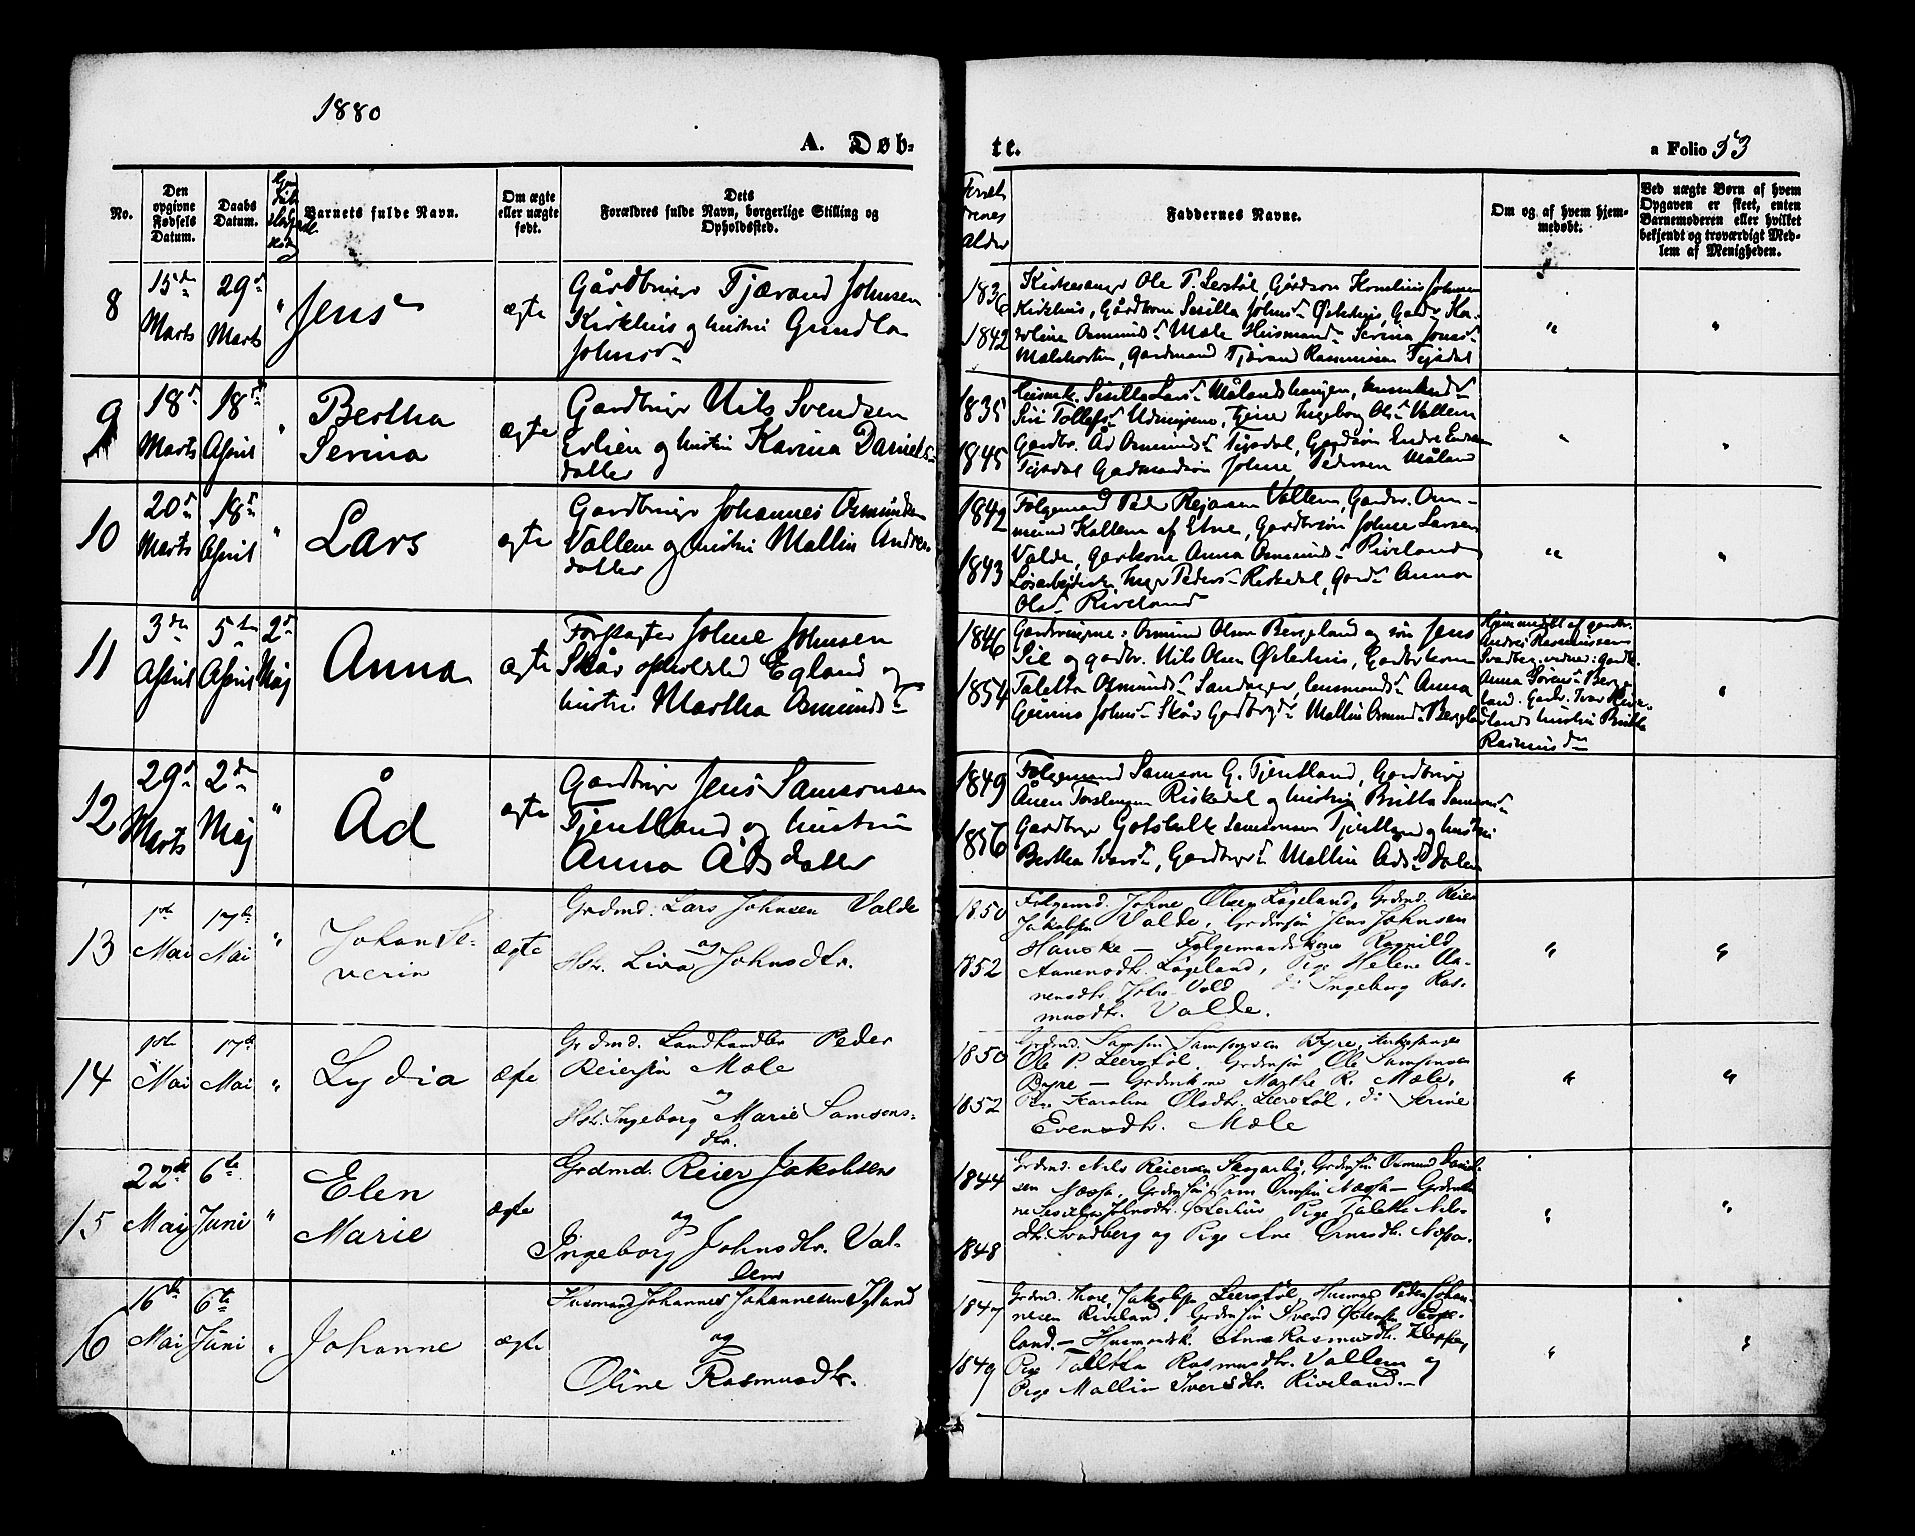 1880
A. Døb-
te.
a Folio 53
No.
Den
opgivne
Fødsels
Datum.
Daabs
Datum.
Barnets fulde Navn.
Om ægte
eller uægte
født.
Dets
Forældres fulde Navn, borgerlige Stilling og
Opholdssted.
Faddernes Navne.
Om og af hvem hjem-
medøbt.
Ved uægte Børn af hvem
Opgaven er skeet, enten
Barnemoderen eller hvilket
bekjendt og troværdigt Med-
lem af Menigheden.
8
15de
Marts
29de
Marts
"
Jens
ægte
Gårdbruger Tjærand Johnsen
Kirkhus og hustru Gundla
Johnsd
1836
1842
Kirkesanger Ole P. Lerstøl Gårdsøn Kornelius Johnsen
Kirkhus, Gårdkone Sesilla Johnsd Østehus
Malehorten, Gardmand Tjærand Rasmussen Tysdal
"
"
9
18de
Marts
18de
April
"
Bertha
Serina
ægte
Gardbruger Nils Svendsen
Erlien og hustru Karina Daniels-
datter
1835
1845
Siri Tollefsd Ingeborg Olsd Vallem
Gardbr. Åd Osmunds Tysdal, Gardsøn Endre Endresen
Tysdal Gardmandsøn Johne Pedersen Måland
"
"
10
20de
Marts
18de
April
"
Lars
ægte
Gardbruger Johannes Osmundsen
Vallem og hustru Mallin Andreas
datter
1842
1843
Følgemand Peder Rejarsen Vallem, Gardbr. Os-
mund Kallem af Etne, Gardbrsøn Johne Larsen
Valde, Garkone Anna Osmundsd Riveland
Inger Pedersd Riskedal, Gard Anna
Olsd Riveland
"
"
11
3de
April
5te
April
2de
Maj
Anna
ægte
Forpagter Johne Johnsen
Skår opholdsted Egland og
hustru Martha Osmundsd
1846
1854
Gardbrugerne: Osmund Olsen Bergeland og søn Jens
Sie og gardbr. Nils Olsen Østehus, Gardbrkone
Taletta Osmundsd Sandager, Anna
Gurine Johnsd Skår Mallin Osmundsd Bergeland
Hjemmedøbt af gardbr.
Andreas Rasmussen
Svadberg
Anna Sørensd Berge-
land. Gardbr. Ivar
hustru Britta
Rasmusd
"
12
29de
Marts
2de
Maj
"
Åd
ægte
Gardbruger Jens Samsonsen
Tjentland og hustru
Anna Ådsdatter
1849
1856
Følgemand Samson G. Tjentland, Gardbruger
Ånen Torstensen Riskedal og hustru Britta Samsonsd
Gardbruger Gotskalk Samsonsen Tjentland og hustru
Bertha Ivarsd, Mallin Adsd Dalen
13
1ste
Mai
17de
Mai
"
Johan Se-
verin
ægte
Grdmd. Lars Johnsen Valde
og
Hstr. Liva Johnsdtr.
1850
1852
Følgemd. Johne Olsen Løgeland, Grdmd. Reier
Jakobsen Valde, Grdmsøn Jens Johnsen
Hauske — Følgemandskone Ragnild
Aanensdtr. Løgeland, Pige Helene Aa-
nensdtr. Valde do Ingeborg Ras-
musdtr. Valde.
"
"
14
1ste
Mai
17de
Mai
"
Lydia
ægte
Grdmd. Landhandler Peder
Reiersøn Mæle
og
Hstr. Ingeborg Marie Samsons-
dtr.
1850
1852
Grdmd. Samson Samsonsen Byre, Kirkesanger
Ole P. Leerstøl, Grdmsøn Ole Samsonsen
Byre — Grdmkone Marthe R. Mæle,
Pige Karoline Olsdtr. Leerstøl, do Serine
Evensdtr. Mæle
"
"
15
22de
Mai
6te
Juni
"
Elen
Marie
ægte
Grdmd. Reier Jakobsen
og
Ingeborg Johnsdtr. Val-
dem
1844
1848
Grdmd. Nils Reiersen Skogarbø, Grdmsøn Osmund Daniel-
sen Næssa, Grdmsøn Næssa — Grdmko-
ne Sesilia Johnsdtr. Østehus Pige Taletta Nils-
dtr. Svadberg og Pige Ane Næssa.
"
"
16
16de
Mai
6te
Juni
"
Johanne
ægte
Husmand Johannes Johannesen Igland
og
Oline Rasmusdtr.
1847
1849
Grdmd. Thore Jakobsen Leerstøl, Husmand Peder Johan-
nesen Riveland, Grdmsøn Svend
land. — Husmandsk. Anna Rasmusdtr. Kleppe,
Pige Taletta Rasmusdtr. Vallem og
Pige Mallin Iversdtr. Riveland. —
"
"